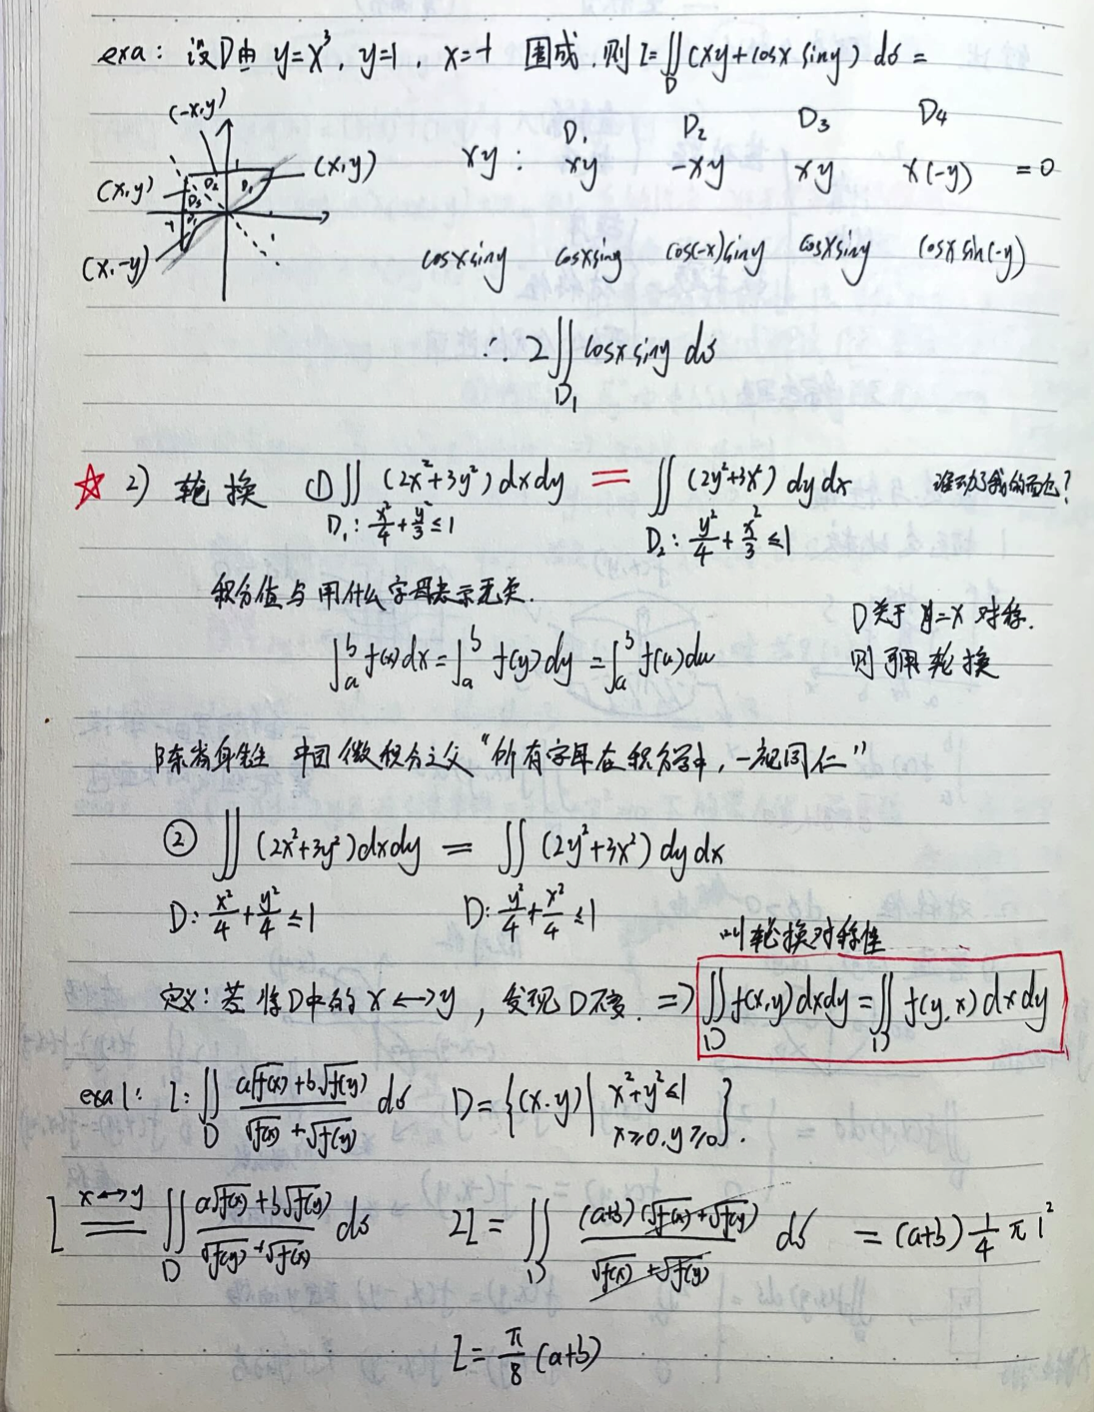 exa: 设D由 y=x³, y=1, x=-1 围成, 则I=∬_D (xy+cosx siny) dσ =
(-x,y)
(x,y)
(x,y)
(x,-y)
D₁ D₂ D₃ D₄
xy: xy -xy xy x(-y) =0
cosxsiny cosxsiny cos(-x)siny cosxsiny cosx sin(-y)
∴ 2∬_{D₁} cosxsiny dσ
☆ 2) 轮换 ①∬ (2x²+3y²)dxdy = ∬ (2y²+3x²) dydx 谁动了我的面包?
D₁: x²/4+y²/3≤1 D₂: y²/4+x²/3≤1
积分值与用什么字母表示无关.
D关于 y=x 对称.
∫_a^b f(x)dx=∫_a^b f(y)dy=∫_a^b f(u)du
则可用轮换
陈省身先生 中国微积分之父 “所有字母在积分学中, 一视同仁”
② ∬ (2x²+3y²)dxdy = ∬ (2y²+3x²) dydx
D: x²/4+y²/4≤1 D: y²/4+x²/4≤1
叫轮换对称性
定义: 若将D中的 x↔y, 发现D不变. ⇒ ∬_D f(x,y)dxdy=∬_D f(y,x)dxdy
exa1: I: ∬_D (a√f(x)+b√f(y))/(√f(x)+√f(y)) dσ D={(x,y)| x²+y²≤1 x≥0,y≥0}.
I =(x↔y)= ∬_D (a√f(y)+b√f(x))/(√f(y)+√f(x)) dσ 2I = ∬_D (a+b)(√f(x)+√f(y))/(√f(x)+√f(y)) dσ = (a+b) 1/4 π 1²
I=π/8 (a+b)